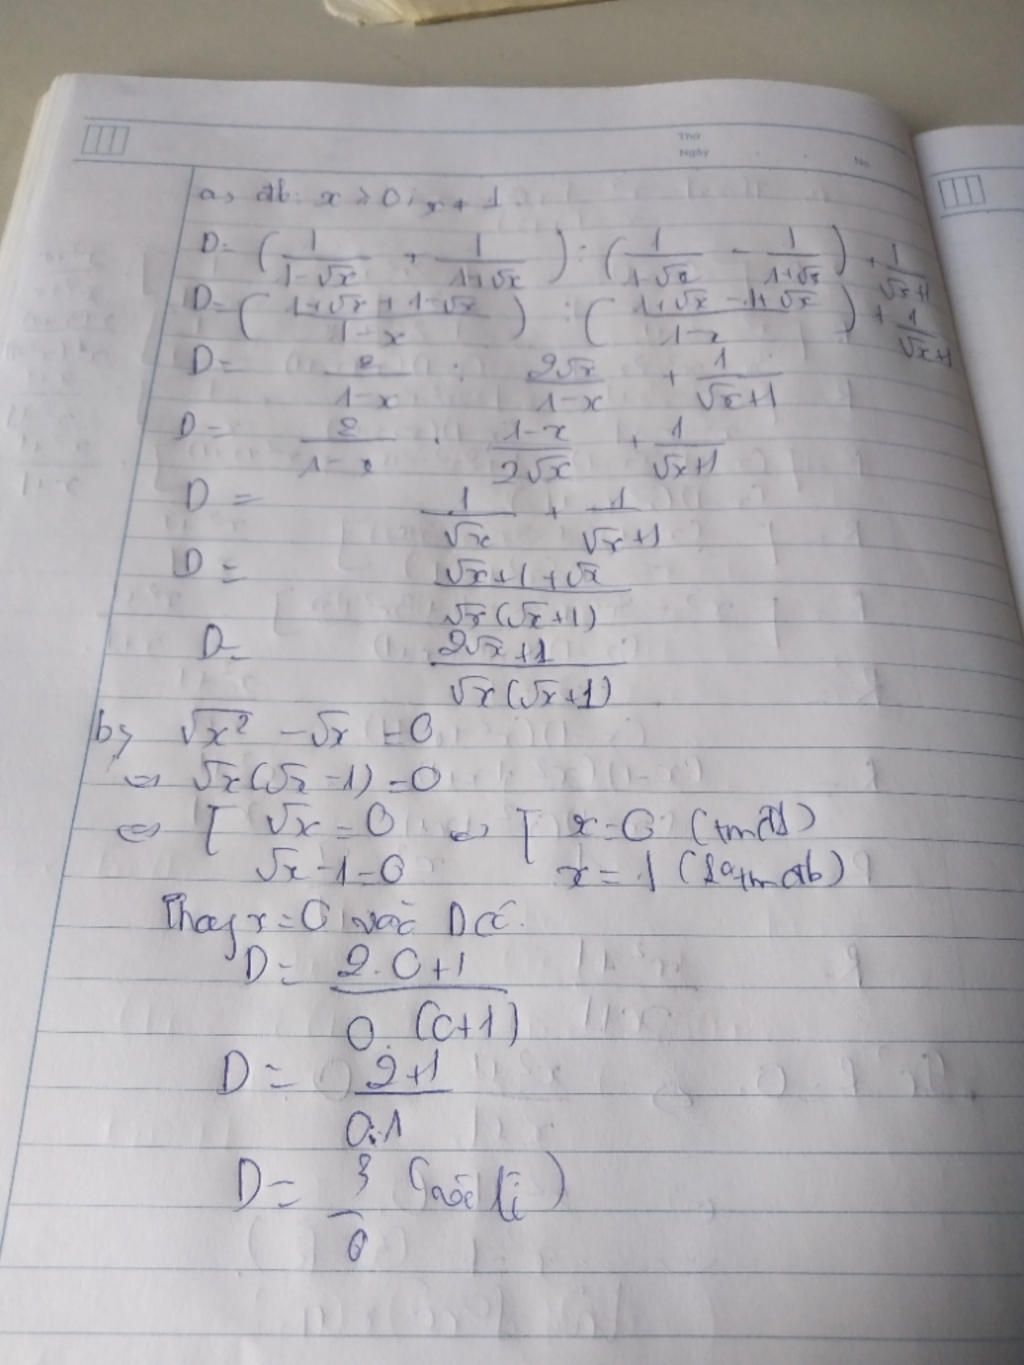 Thứ
Ngày
No.
a, đk: x ≥ 0; x ≠ 1.
D= (1/(1-√x) + 1/(1+√x)) : (1/(1-√x) - 1/(1+√x)) + 1/(√x+1)
D= ((1+√x+1-√x)/(1-x)) : ((1+√x-1+√x)/(1-x)) + 1/(√x+1)
D= 2/(1-x) : 2√x/(1-x) + 1/(√x+1)
D= 2/(1-x) . (1-x)/(2√x) + 1/(√x+1)
D= 1/√x + 1/(√x+1)
D= (√x+1+√x)/(√x(√x+1))
D= (2√x+1)/(√x(√x+1))
b, √x² - √x = 0
⇔ √x(√x-1)=0
⇔ [ √x=0 ⇔ [ x=0 (tmđk)
√x-1=0 x=1 (ko tmđk)
Thay x=0 vào D có.
D= (2.0+1)/(0.(0+1))
D= (2+1)/(0.1)
D= 3/0 (vô lí)